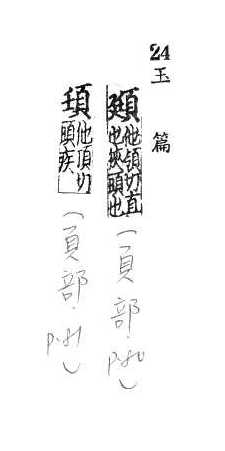 24 玉篇
頲 他領切直
也狹頭也
(頁部·p.80)
他頂切
頭疾
(頁部·p.81)